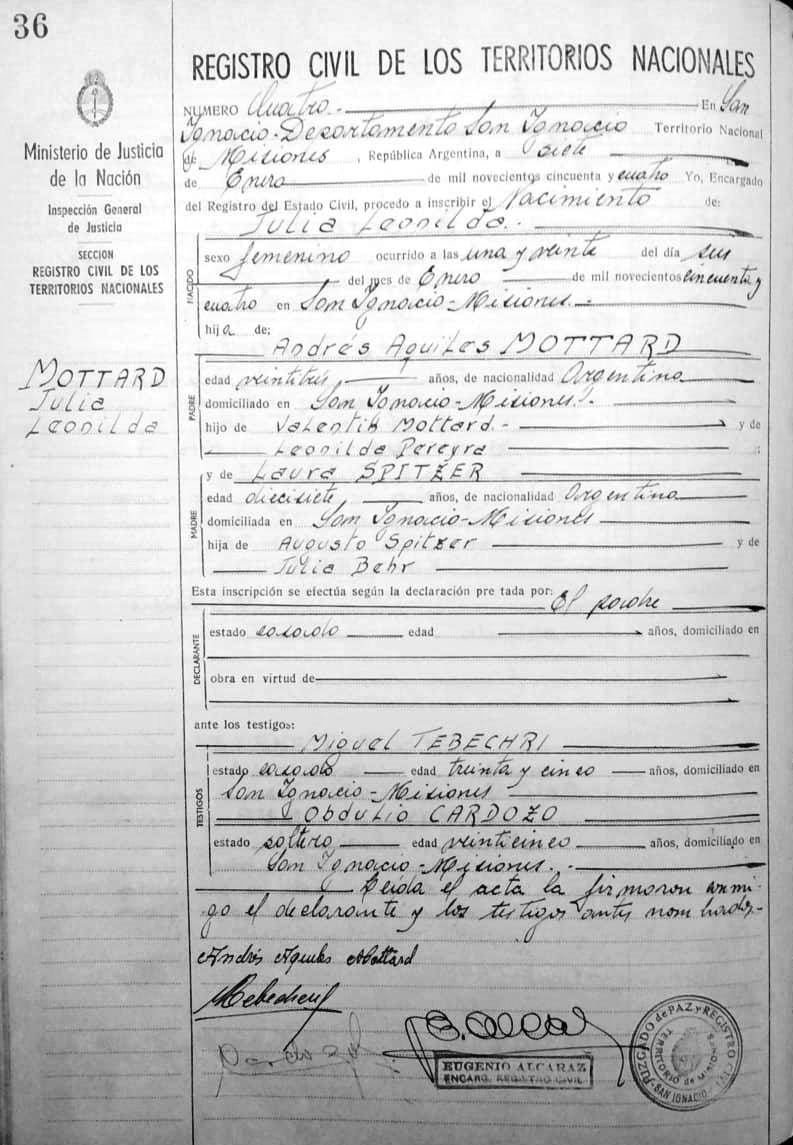 36
REGISTRO CIVIL DE LOS TERRITORIOS NACIONALES
Ministerio de Justicia
de la Nación
Inspección General
de Justicia
SECCION
REGISTRO CIVIL DE LOS
TERRITORIOS NACIONALES
MOTTARD
Julia
Leonilda
NUMERO Cuatro.- En San
Ignacio-Departamento San Ignacio Territorio Nacional
de Misiones, República Argentina, a Siete
de Enero de mil novecientos cincuenta y cuatro Yo, Encargado
del Registro del Estado Civil, procedo a inscribir el Nacimiento de:
Julia Leonilda.-
NACIDO
sexo femenino ocurrido a las una y veinte del día seis
del mes de Enero de mil novecientos cincuenta y
cuatro en San Ignacio-Misiones.-
hija de:
Andrés Aquiles MOTTARD
PADRE
edad veintitrés años, de nacionalidad Argentina
domiciliado en San Ignacio-Misiones.-
hijo de Valentin Mottard.- y de
Leonilda Pereyra
y de Laura SPITZER
MADRE
edad diecisiete años, de nacionalidad Argentina
domiciliada en San Ignacio-Misiones
hija de Augusto Spitzer y de
Julia Behr
Esta inscripción se efectúa según la declaración pre tada por: El padre
DECLARANTE
estado casado edad años, domiciliado en
obra en virtud de
ante los testigos:
Miguel TEBECHRI
TESTIGOS
estado casado edad treinta y cinco años, domiciliado en
San Ignacio-Misiones
Obdulio CARDOZO
estado soltero edad veinticinco años, domiciliado en
San Ignacio-Misiones.-
Leida el acta la firmaron conmi-
go el declarante y los testigos antes nombrados.-
Andrés Aquiles Mottard
EUGENIO ALCARAZ
ENCARG. REGISTRO CIVIL
JUZGADO de PAZ y REGISTRO CIVIL
TERRITORIO de MISIONES
SAN IGNACIO